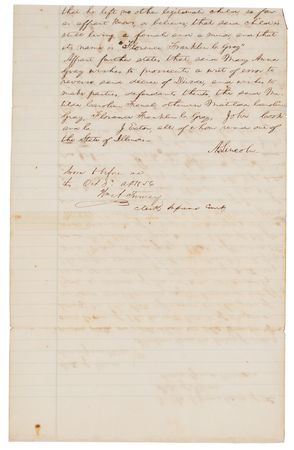 that he left no other legitimate child so far
as affiant knows, or believes, that said child is
still living, a female and a minor, and that
its name is "Florence Franklin Le Gray"
Affiant further states that said Mary Anna
Gray wishes to prosecute a writ of error to
reverse said decree of divorce, and wishes to
make parties, defendants thereto, the said
Caroline otherwise Matilda Caroline
Gray, Florence Franklin Le Gray, John Cook
and J. Eaton, all of whom reside out of
the State of Illinois.
A. Lincoln
Sworn to before me
this Oct 3d AD 1856
Clerk Supreme Court